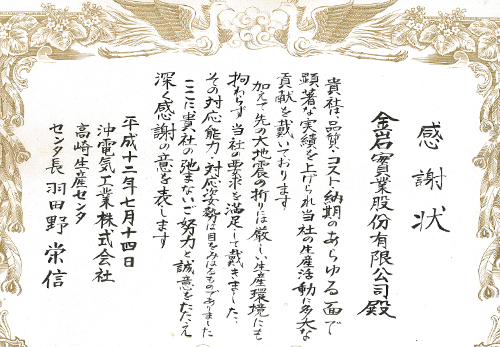 感謝状
金岩實業股份有限公司殿
貴社は品質、コスト、納期のあらゆる面で
顕著な実績を上げられ当社の生産活動に多大な
貢献を戴いております
加えて先の大地震の折りには厳しい生産環境にも
拘わらず当社の要求を満足して戴きました、
その対応能力・対応姿勢は目をみはるものでありました
ここに貴社の弛まないご努力と誠意をたたえ
深く感謝の意を表します
平成十二年七月十四日
沖電気工業株式会社
高崎生産センタ
センタ長 羽田野栄信